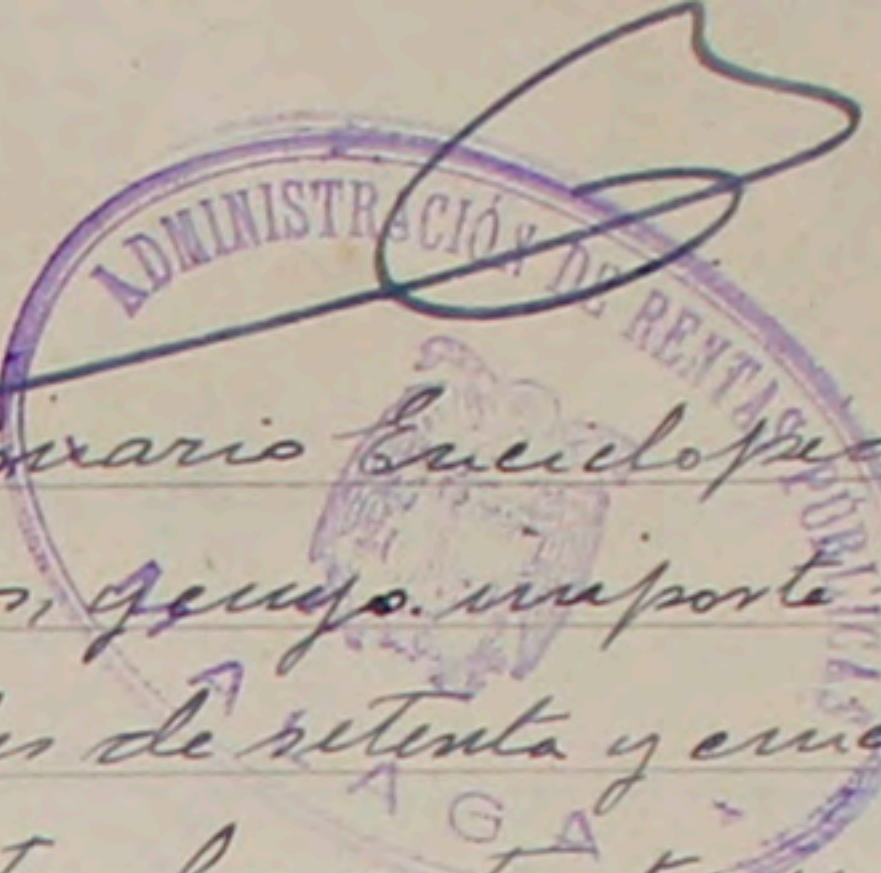 ADMINISTRACIÓN DE RENTAS PÚBLICAS
AGA
Enciclope
y cuyo importe
de setenta y cinc